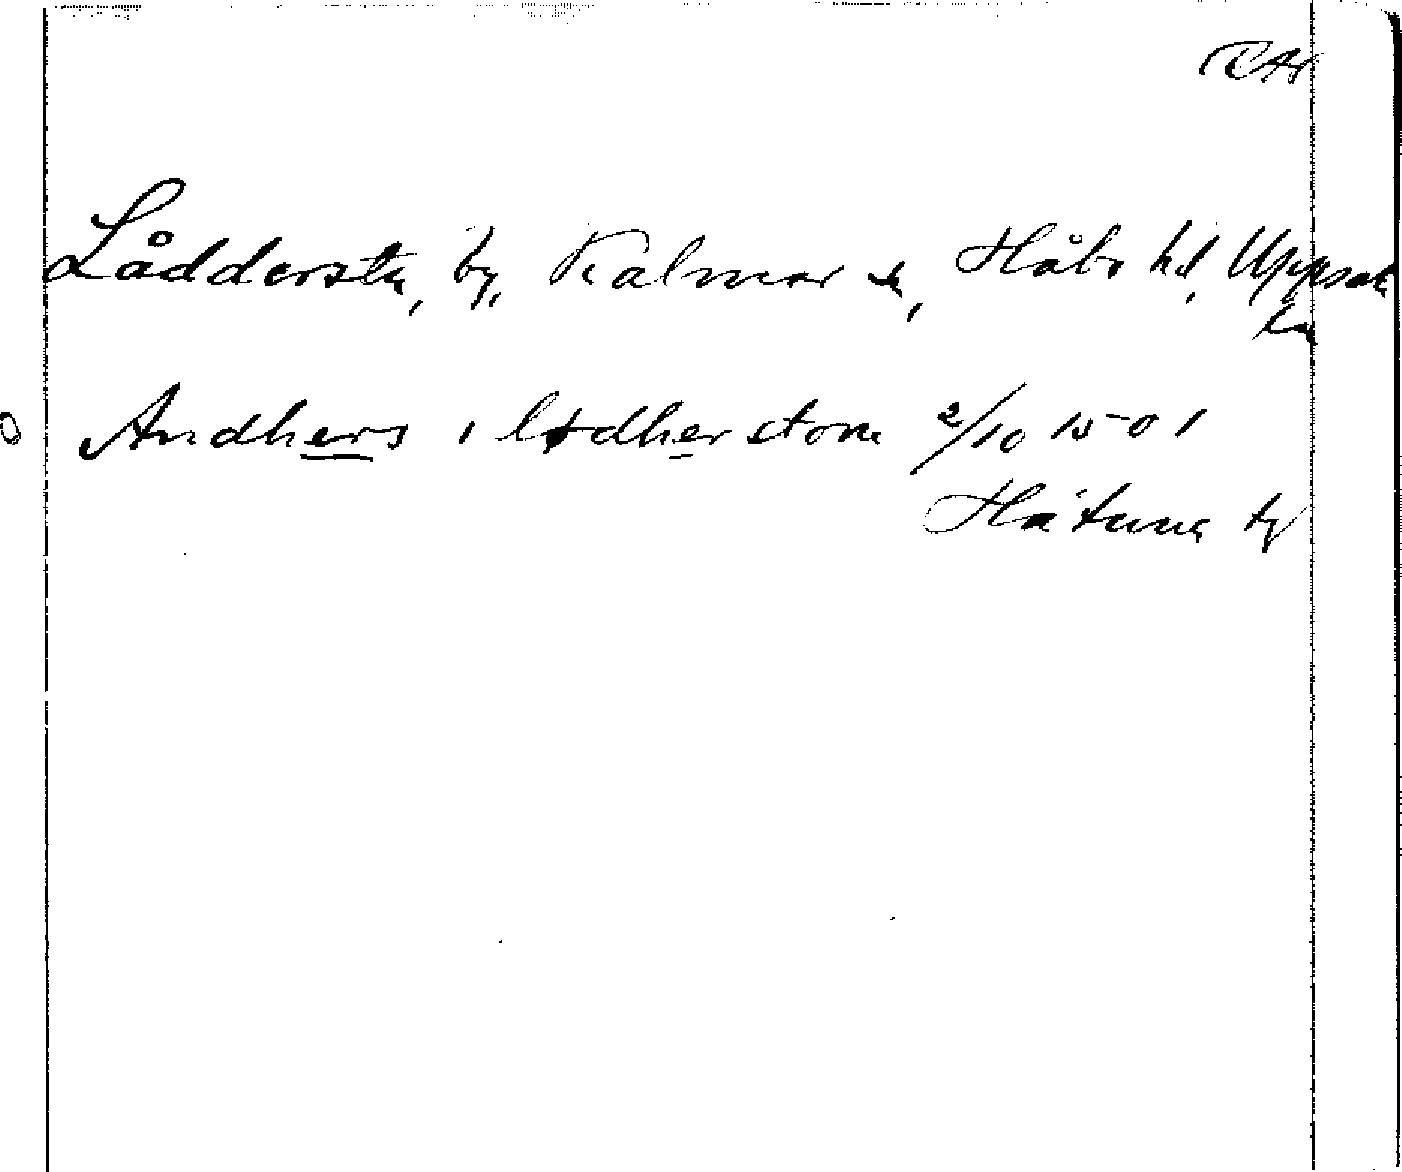 RAp
Låddersta, by, Kalmar sn, Håbo hd, Uppsala
län
Andhers i lodherstom 2/10 1501
Håtuna ty